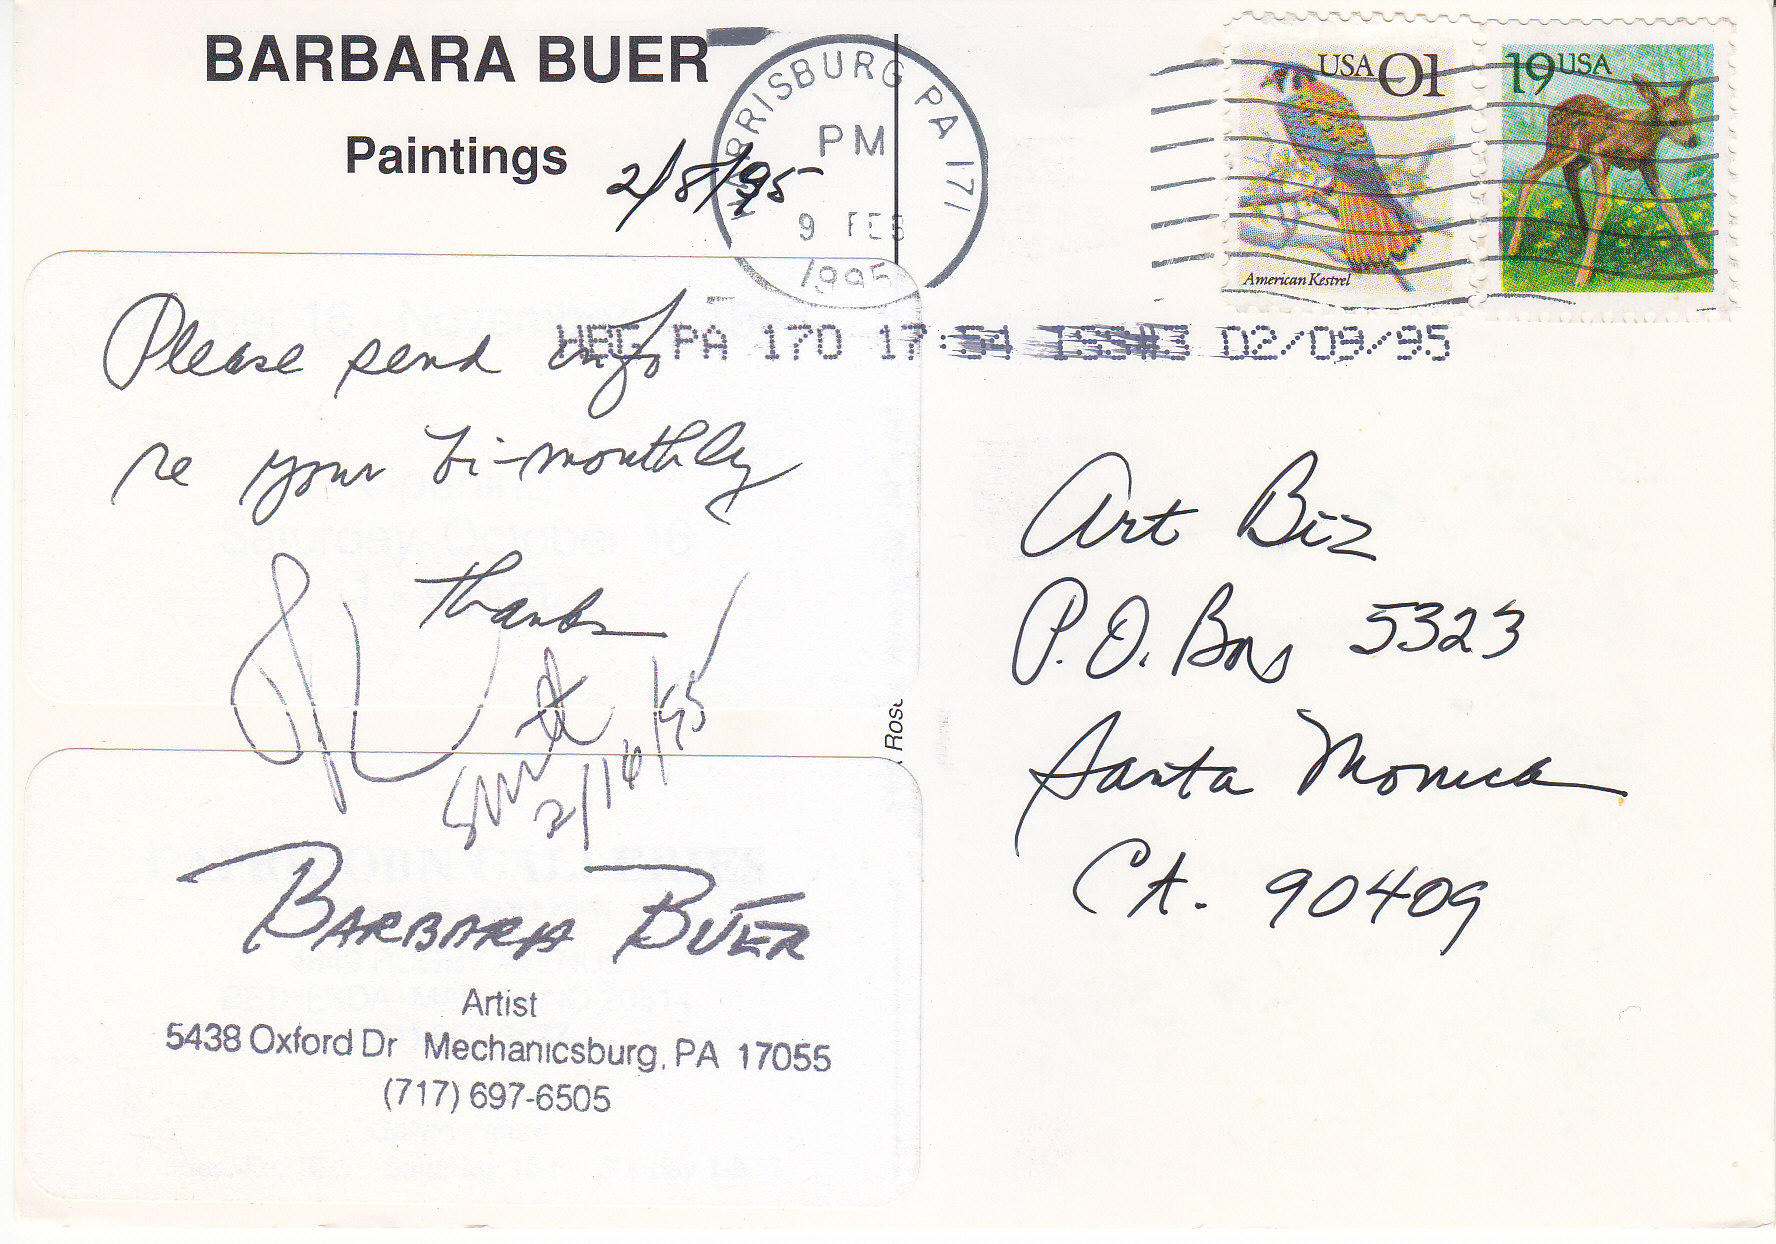 BARBARA BUER
Paintings
2/8/95
HARRISBURG PA 171
PM
9 FEB
1995
USA 01
American Kestrel
19 USA
HBG PA 170 17:54 02/09/95
Please send info
re your bi-monthly
Thanks
Sent
2/16/95
Art Biz
P.O. Box 5323
Santa Monica
CA. 90409
BARBARA BUER
Artist
5438 Oxford Dr Mechanicsburg, PA 17055
(717) 697-6505